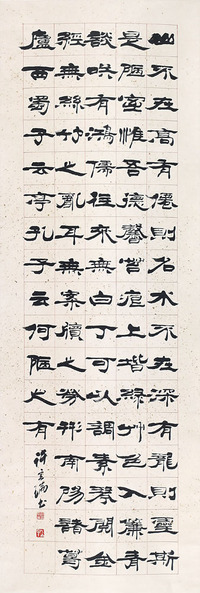 山不在高有僊則名水不在深有龍則靈斯
是陋室惟吾德馨苔痕上堦綠艸色入簾青
談咲有鴻儒往來無白丁可以調素琴閱金
經無絲竹之亂耳無案牘之勞形南陽諸葛
廬西蜀子云亭孔子云何陋之有
許書